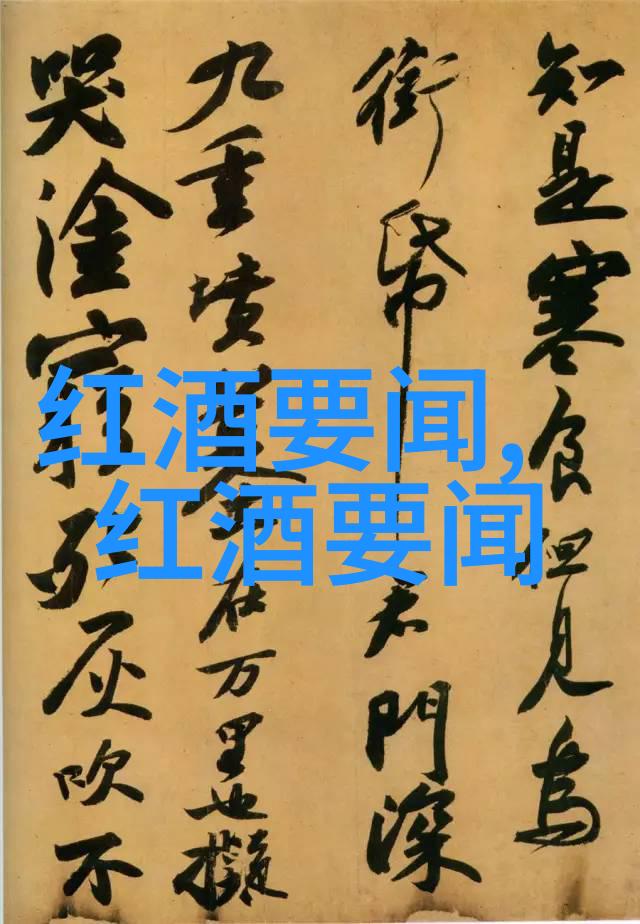 知是寒食但見烏
銜帋君門深
九重墳墓在万里也擬
哭塗窮死灰吹不
红酒要闻,
红酒要闻